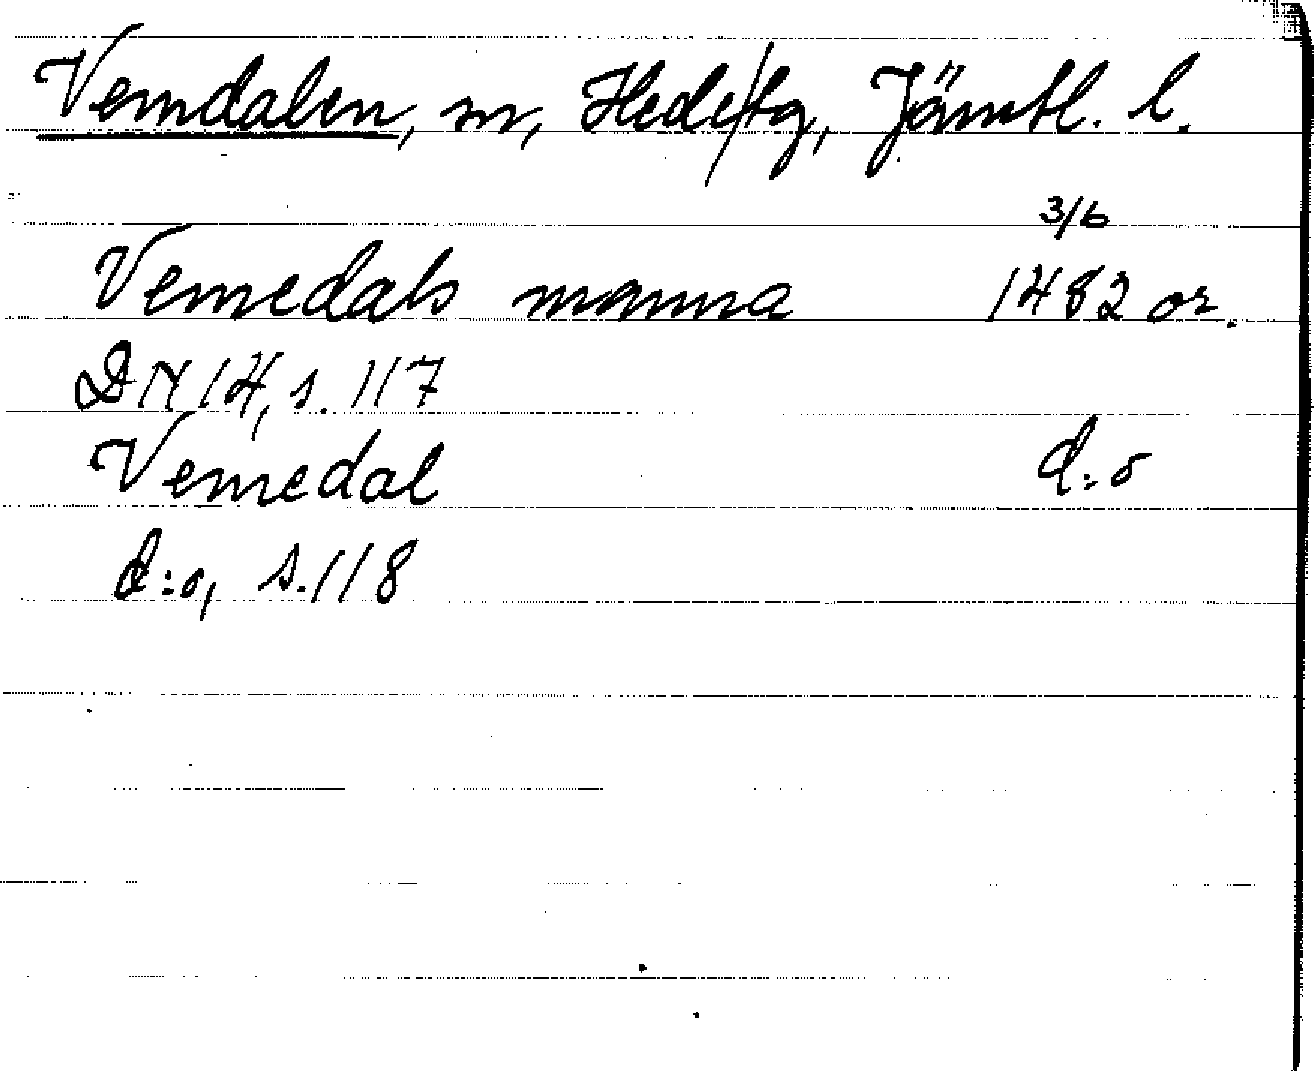 Vemdalen, sn, Hede/tg, Jämtl. l.
3/6
Vemedals manna 1482 or.
DN 14, s. 117
Vemedal d:o
d:o, s. 118